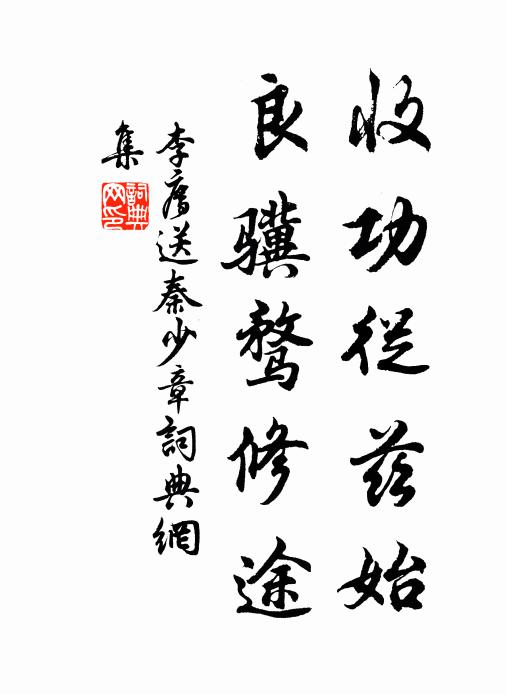 收功從茲始
良骥骛修途
李廌送秦少章詞典網
集
詞典網印